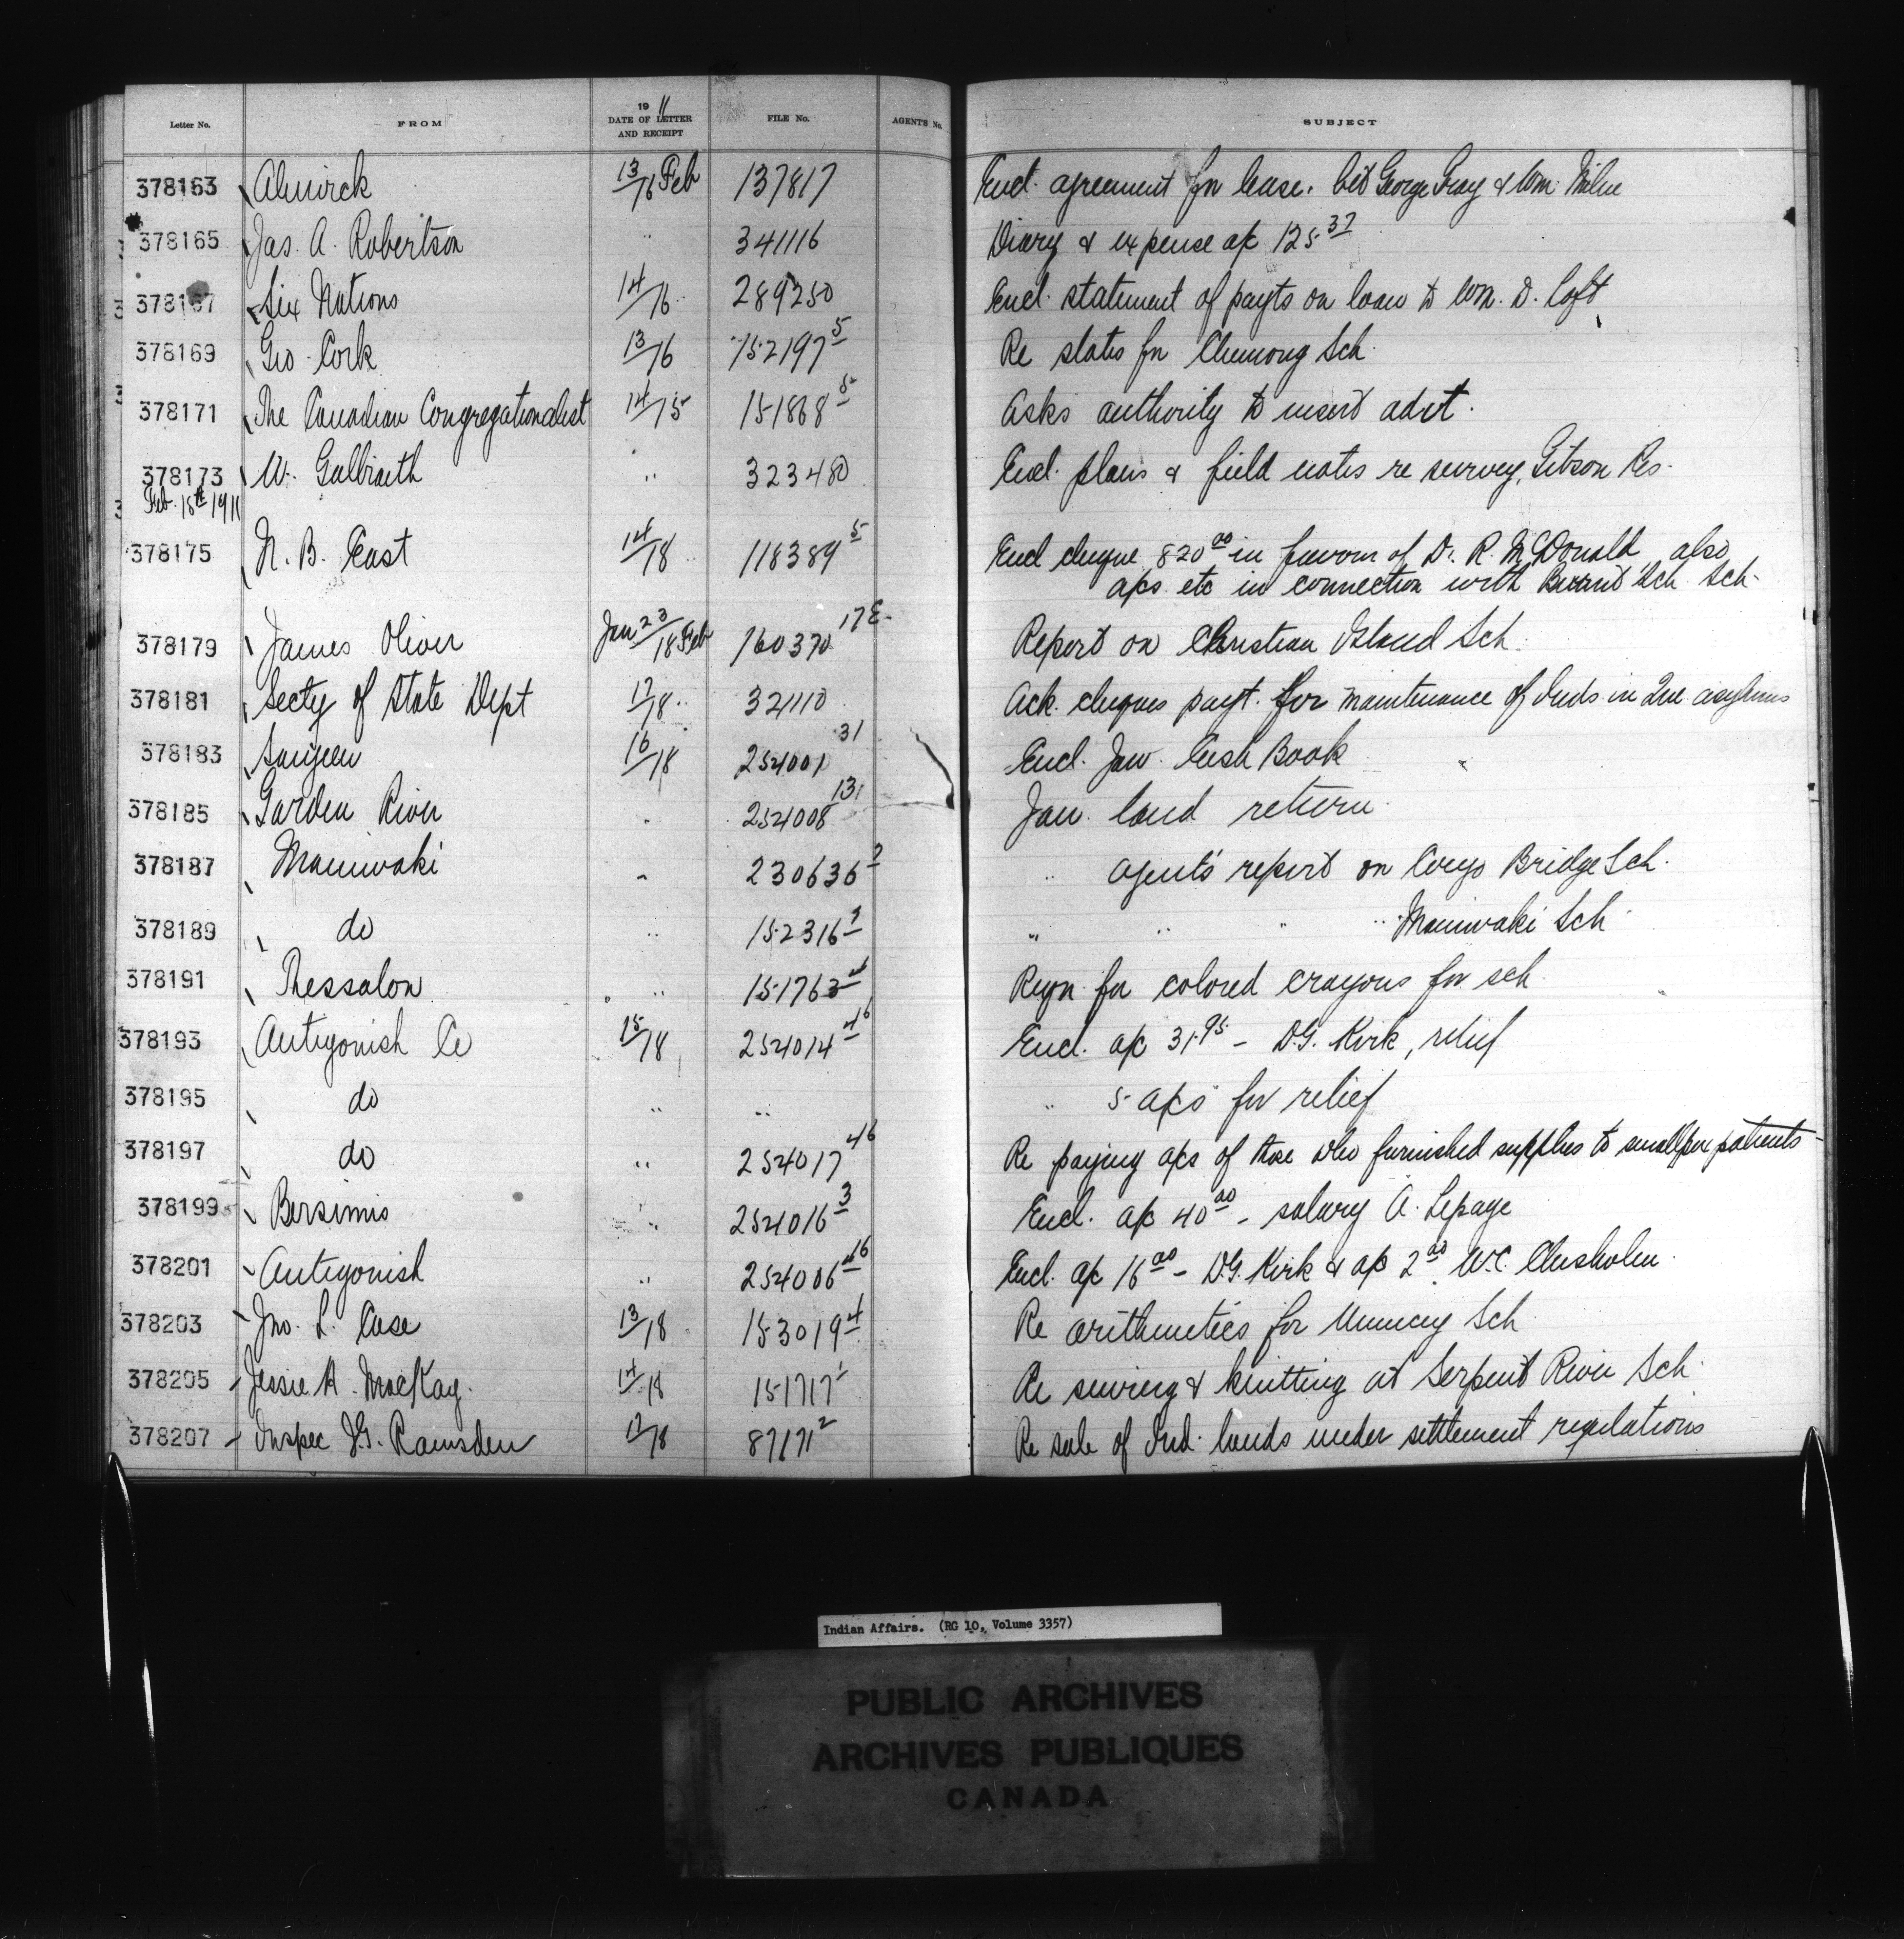 Letter No. FROM 1911 DATE OF LETTER AND RECEIPT FILE No. AGENT'S No. SUBJECT
378163 Alnwick 13/16 Feb 137817 Encl. agreement for lease. bet George Gray & Wm. Milne
378165 Jas. A. Robertson " 341116 Diary & expense a/c 125 37
378167 Six Nations 14/16 " 289250 Encl. statement of payts on loan to Wm. D. Loft
378169 Geo Cork 13/16 152197 5 Re slates for Chemong Sch.
378171 The Canadian Congregationalist 14/15 151868 5 Asks authority to insert advt.
378173 W. Galbraith " 323480 Encl. plans & field notes re survey, Gibson Res.
Feb. 18th 1911
378175 N. B. East 14/18 " 118389 5 Encl cheque 820 00 in favour of D. R. McDonald, also
a/cs. etc in connection with Sch Sch.
378179 James Oliver Jan 23/18 Feb 160370 17E. Report on Christian Island Sch.
378181 Secty of State Dept 17/18 " 321110 Ack. cheques payt. for maintenance of Inds in Que asylums
378183 Saugeen 16/18 254001 31 Encl. Jan. Cash Book
378185 Garden River " 254008 131 Jan. land return.
378187 Maniwaki " 230636 2 " agent's report on Congo Bridge Sch.
378189 do " 152316 1 " " " " Maniwaki Sch.
378191 Thessalon " 151763 4 Reqn for colored crayons for sch.
378193 Antigonish Co 15/18 254014 46 Encl. a/c 31.95 - D.G. Kirk, relief
378195 do " " " 5 a/cs for relief
378197 do " 254017 46 Re paying a/cs of those who furnished supplies to smallpox patients
378199 Bersimis " 254016 3 Encl. a/c 40 00 - salary A. Lepage
378201 Antigonish " 254006 46 Encl. a/c 16 00 - D.G. Kirk & a/c 2 00. W.C. Chisholm.
378203 Jno. L. Case 13/18 153019 4 Re arithmetics for Muncey Sch
378205 Jessie H. MacKay. 14/18 151717 1 Re sewing & knitting at Serpent River Sch.
378207 Inspec J.G. Ramsden 17/18 87171 2 Re sale of Ind. lands under settlement regulations
Indian Affairs. (RG 10, Volume 3357)
PUBLIC ARCHIVES
ARCHIVES PUBLIQUES
CANADA